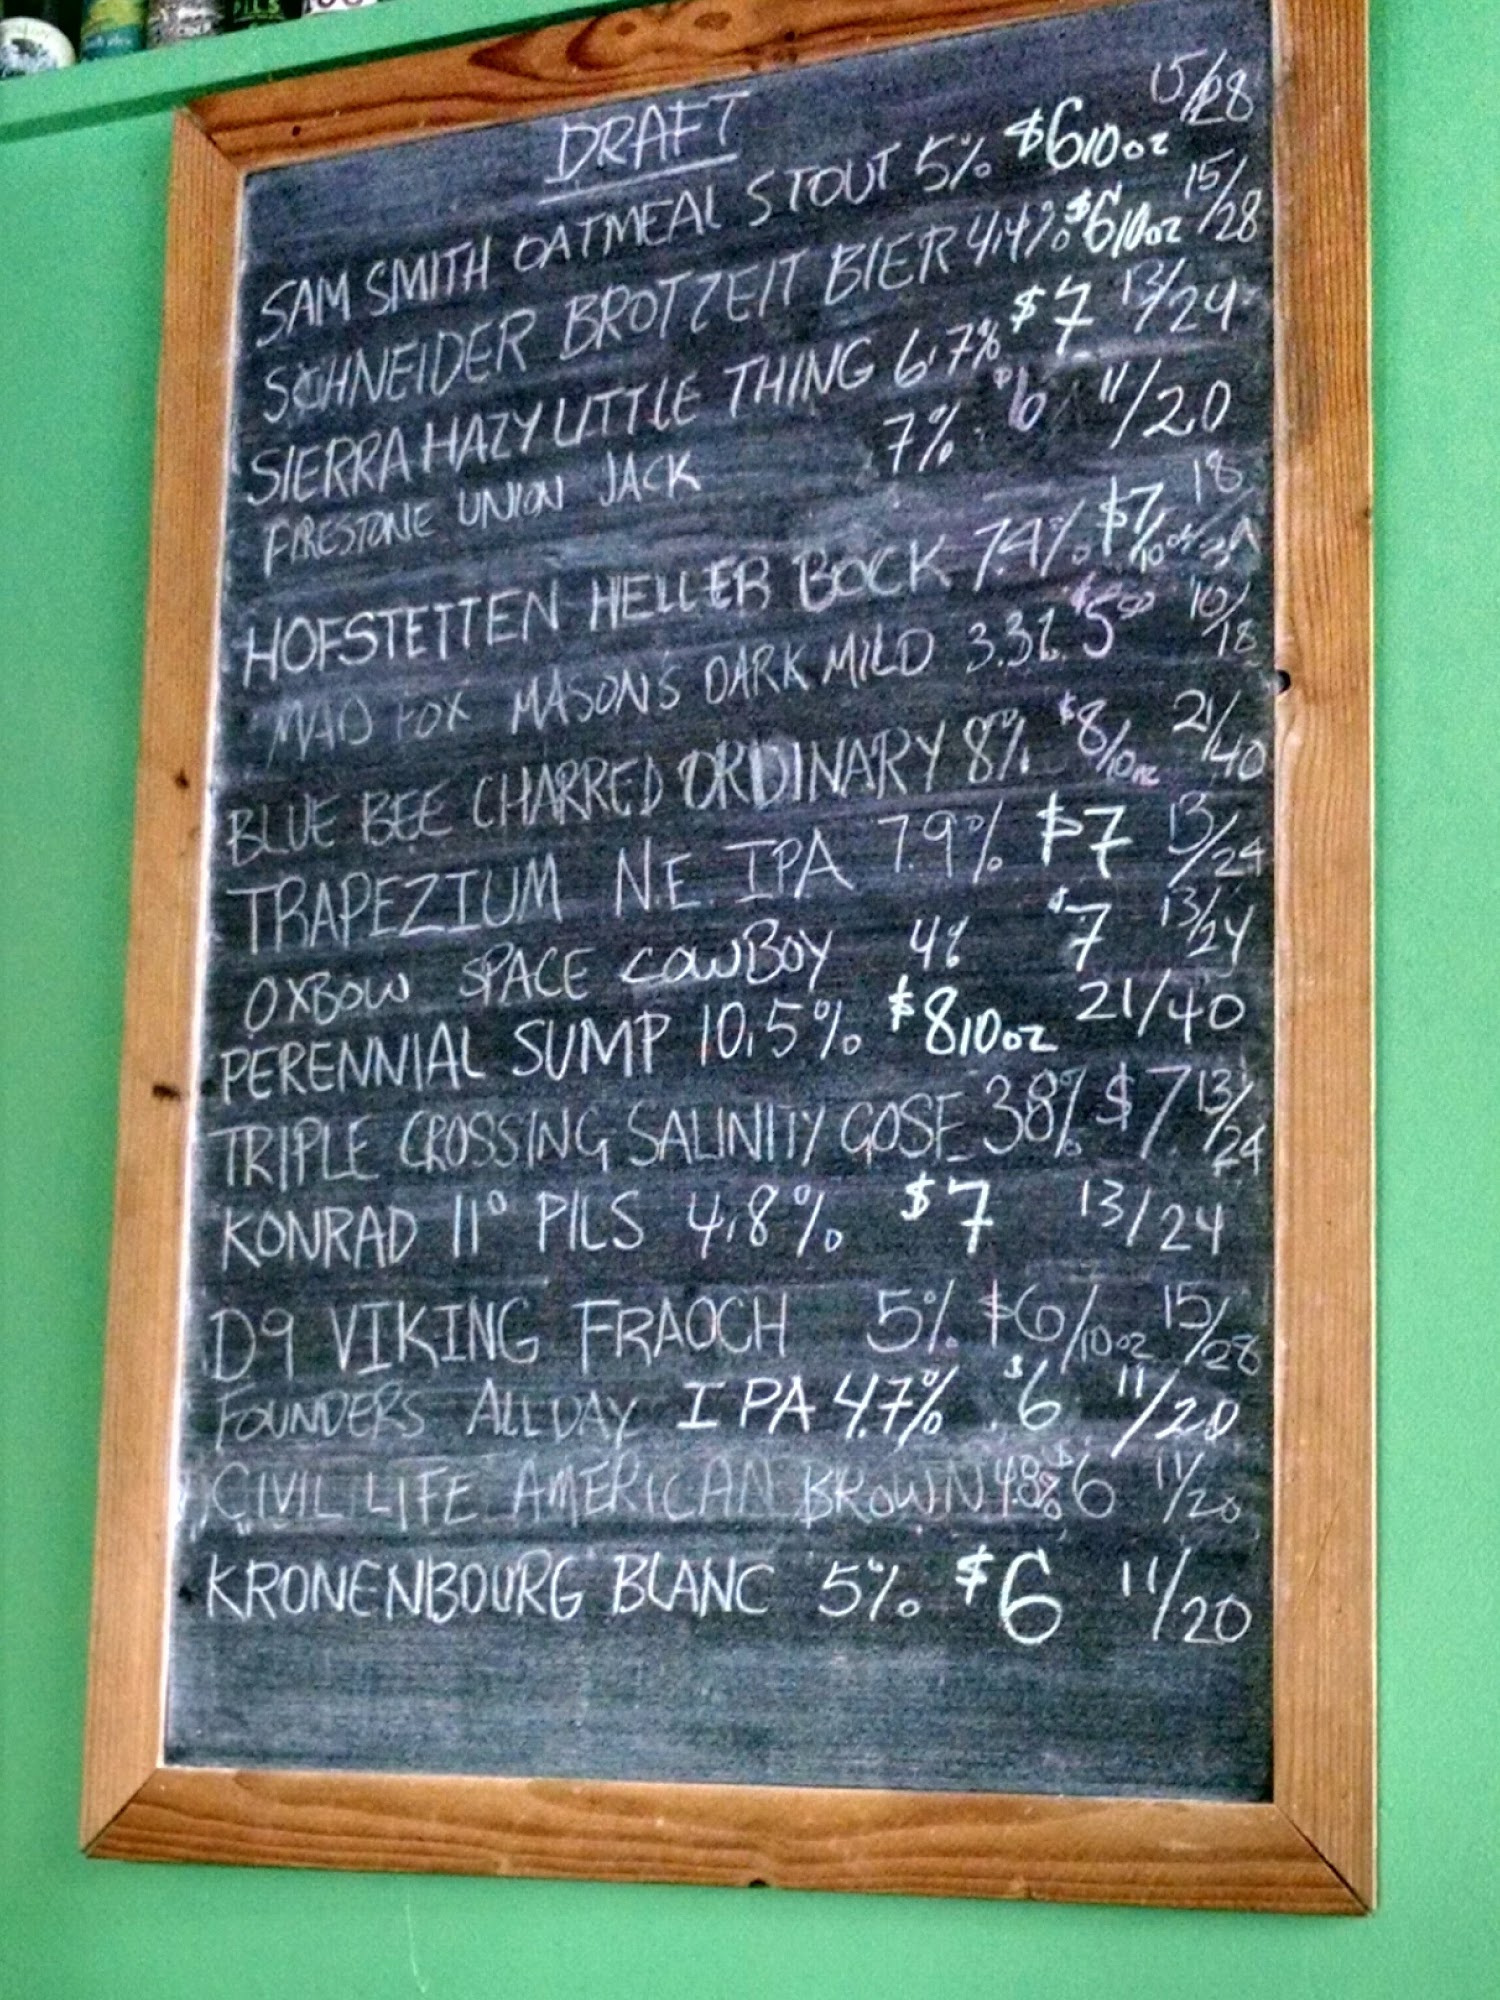 PILS
DRAFT
SAM SMITH OATMEAL STOUT 5% $6 10oz 15/28
SCHNEIDER BROTZEIT BIER 4.4% $6 10oz 15/28
SIERRA HAZY LITTLE THING 6.7% $7 13/24
FIRESTONE UNION JACK 7% $6 11/20
HOFSTETTEN HELLER BOCK 7.4% $7/10oz 18/
MAD FOX MASON'S DARK MILD 3.3% $5.50 10/18
BLUE BEE CHARRED ORDINARY 8% $8/10oz 21/40
TRAPEZIUM N.E. IPA 7.9% $7 13/24
OXBOW SPACE COWBOY 4% $7 13/24
PERENNIAL SUMP 10.5% $8 10oz 21/40
TRIPLE CROSSING SALINITY GOSE 3.8% $7 13/24
KONRAD 11° PILS 4.8% $7 13/24
D9 VIKING FRAOCH 5% $6/10oz 15/28
FOUNDERS ALLDAY IPA 4.7% $6 11/20
CIVIL LIFE AMERICAN BROWN 4.8% $6 11/20
KRONENBOURG BLANC 5% $6 11/20